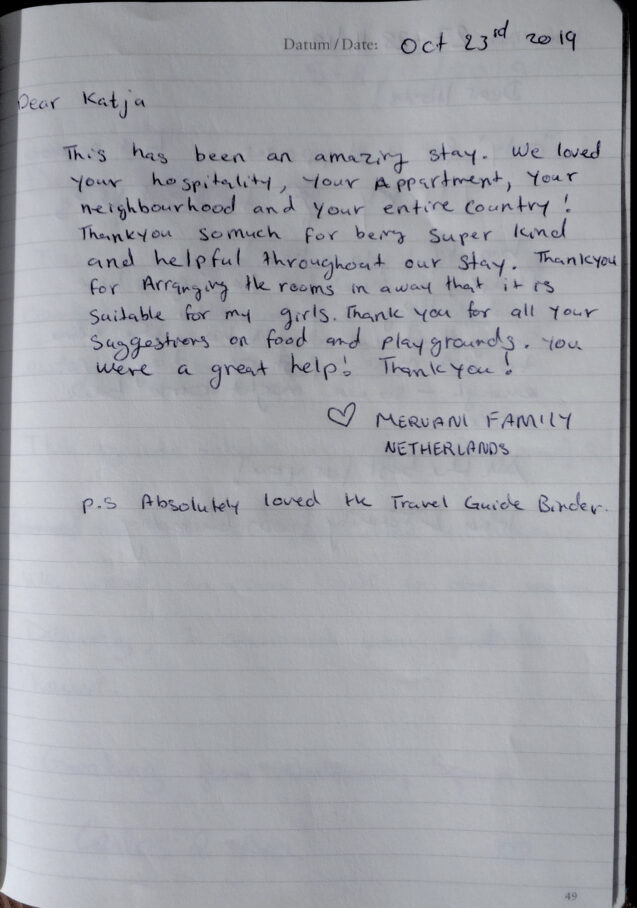 Datum / Date: Oct 23rd 2019
Dear Katja
This has been an amazing stay. We loved
your hospitality, your Appartment, your
neighbourhood and your entire country!
Thankyou somuch for being super kind
and helpful throughout our stay. Thankyou
for Arranging the rooms in away that it is
suitable for my girls. Thank you for all your
suggestions on food and playgrounds. You
were a great help! Thankyou!
♡ MERVANI FAMILY
NETHERLANDS
P.S Absolutely loved the Travel Guide Binder.
49